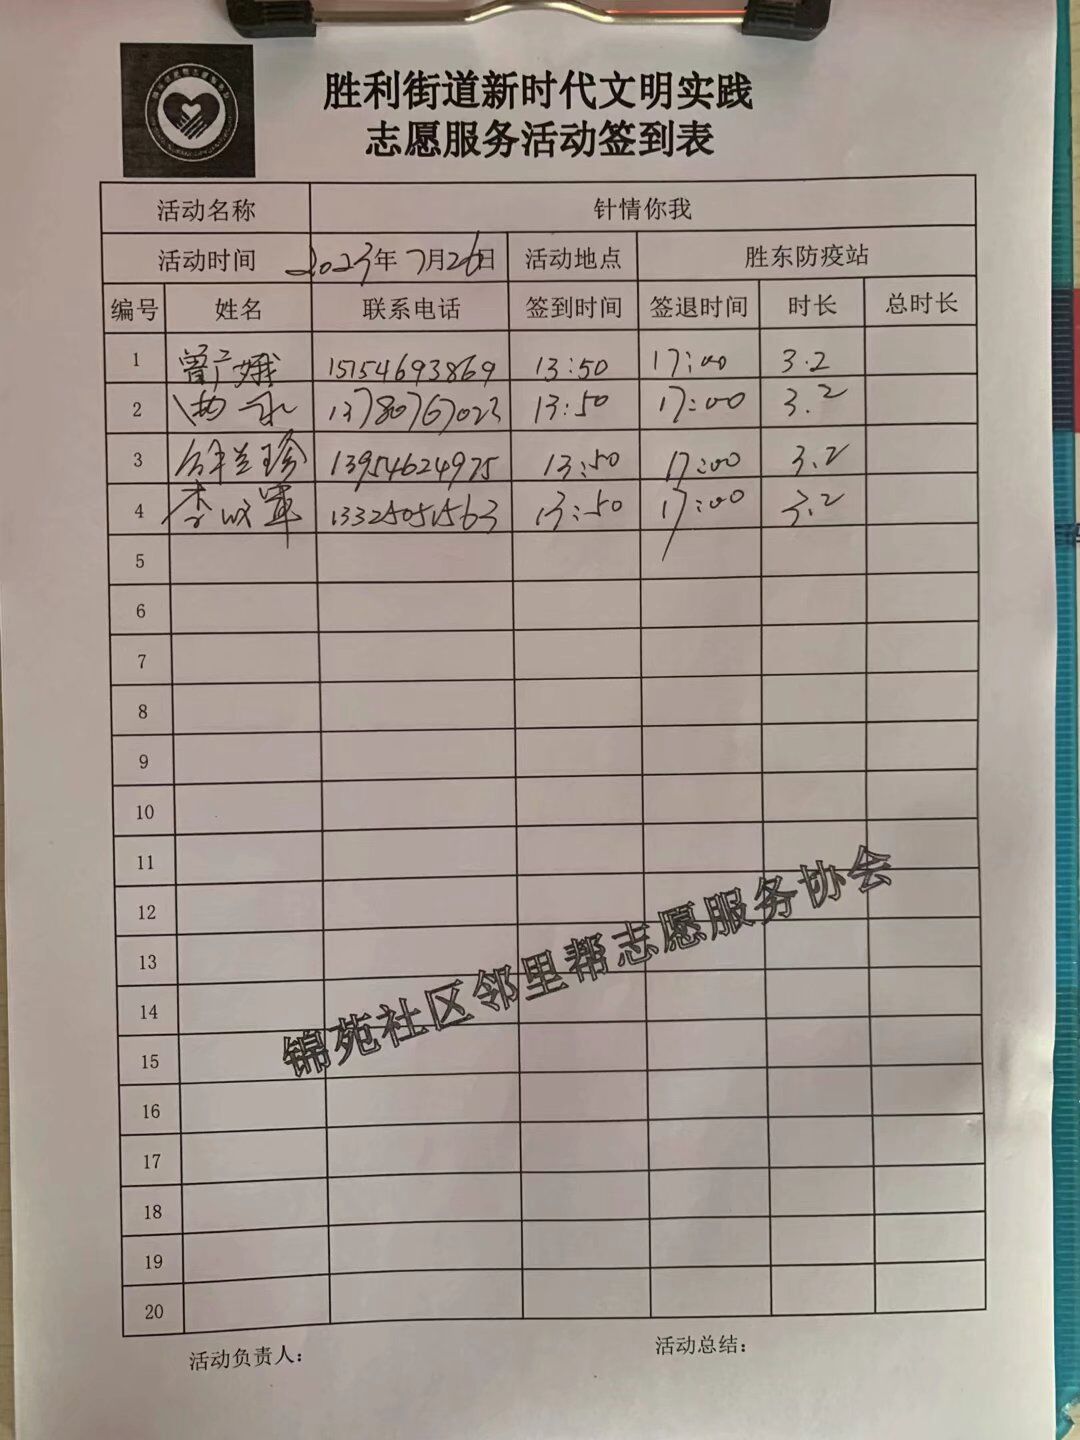 胜利街道新时代文明实践
志愿服务活动签到表
活动名称 针情你我
活动时间 2023年7月26日 活动地点 胜东防疫站
编号 姓名 联系电话 签到时间 签退时间 时长 总时长
1 曾广娥 15154693869 13:50 17:00 3.2
2 13780767023 13:50 17:00 3.2
3 徐兰珍 13954624975 13:50 17:00 3.2
4 李 军 13325051563 13:50 17:00 3.2
5
6
7
8
9
10
11
12
13
14
15
16
17
18
19
20
锦苑社区邻里帮志愿服务协会
活动负责人: 活动总结: